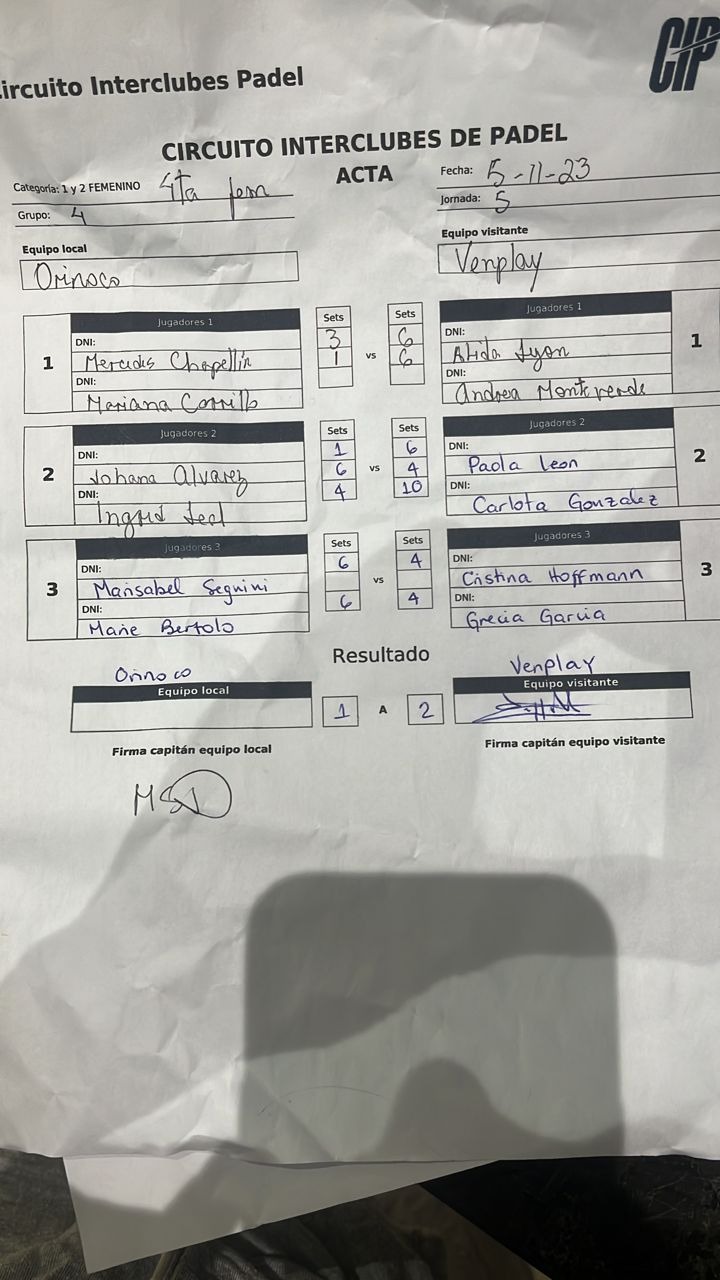 Circuito Interclubes Padel
CIP
CIRCUITO INTERCLUBES DE PADEL
ACTA
Categoría: 1 y 2 FEMENINO 4ta fem
Fecha: 5-11-23
Grupo: 4
Jornada: 5
Equipo local
Equipo visitante
Orinoco
Venplay
Jugadores 1 Sets Sets Jugadores 1
1 DNI: 3 vs 6 DNI: 1
Mercedes Chapellín 1 6 Alida Lyon
DNI: DNI:
Mariana Carrillo Andrea Monteverde
Jugadores 2 Sets Sets Jugadores 2
2 DNI: 1 vs 6 DNI: 2
Johana Alvarez 6 4 Paola Leon
DNI: 4 10 DNI:
Ingrid Leal Carlota Gonzalez
Jugadores 3 Sets Sets Jugadores 3
3 DNI: 6 vs 4 DNI: 3
Marisabel Seguini Cristina Hoffmann
DNI: 6 4 DNI:
Marie Bertolo Grecia Garcia
Resultado
Orinoco Venplay
Equipo local Equipo visitante
1 A 2
Firma capitán equipo local Firma capitán equipo visitante